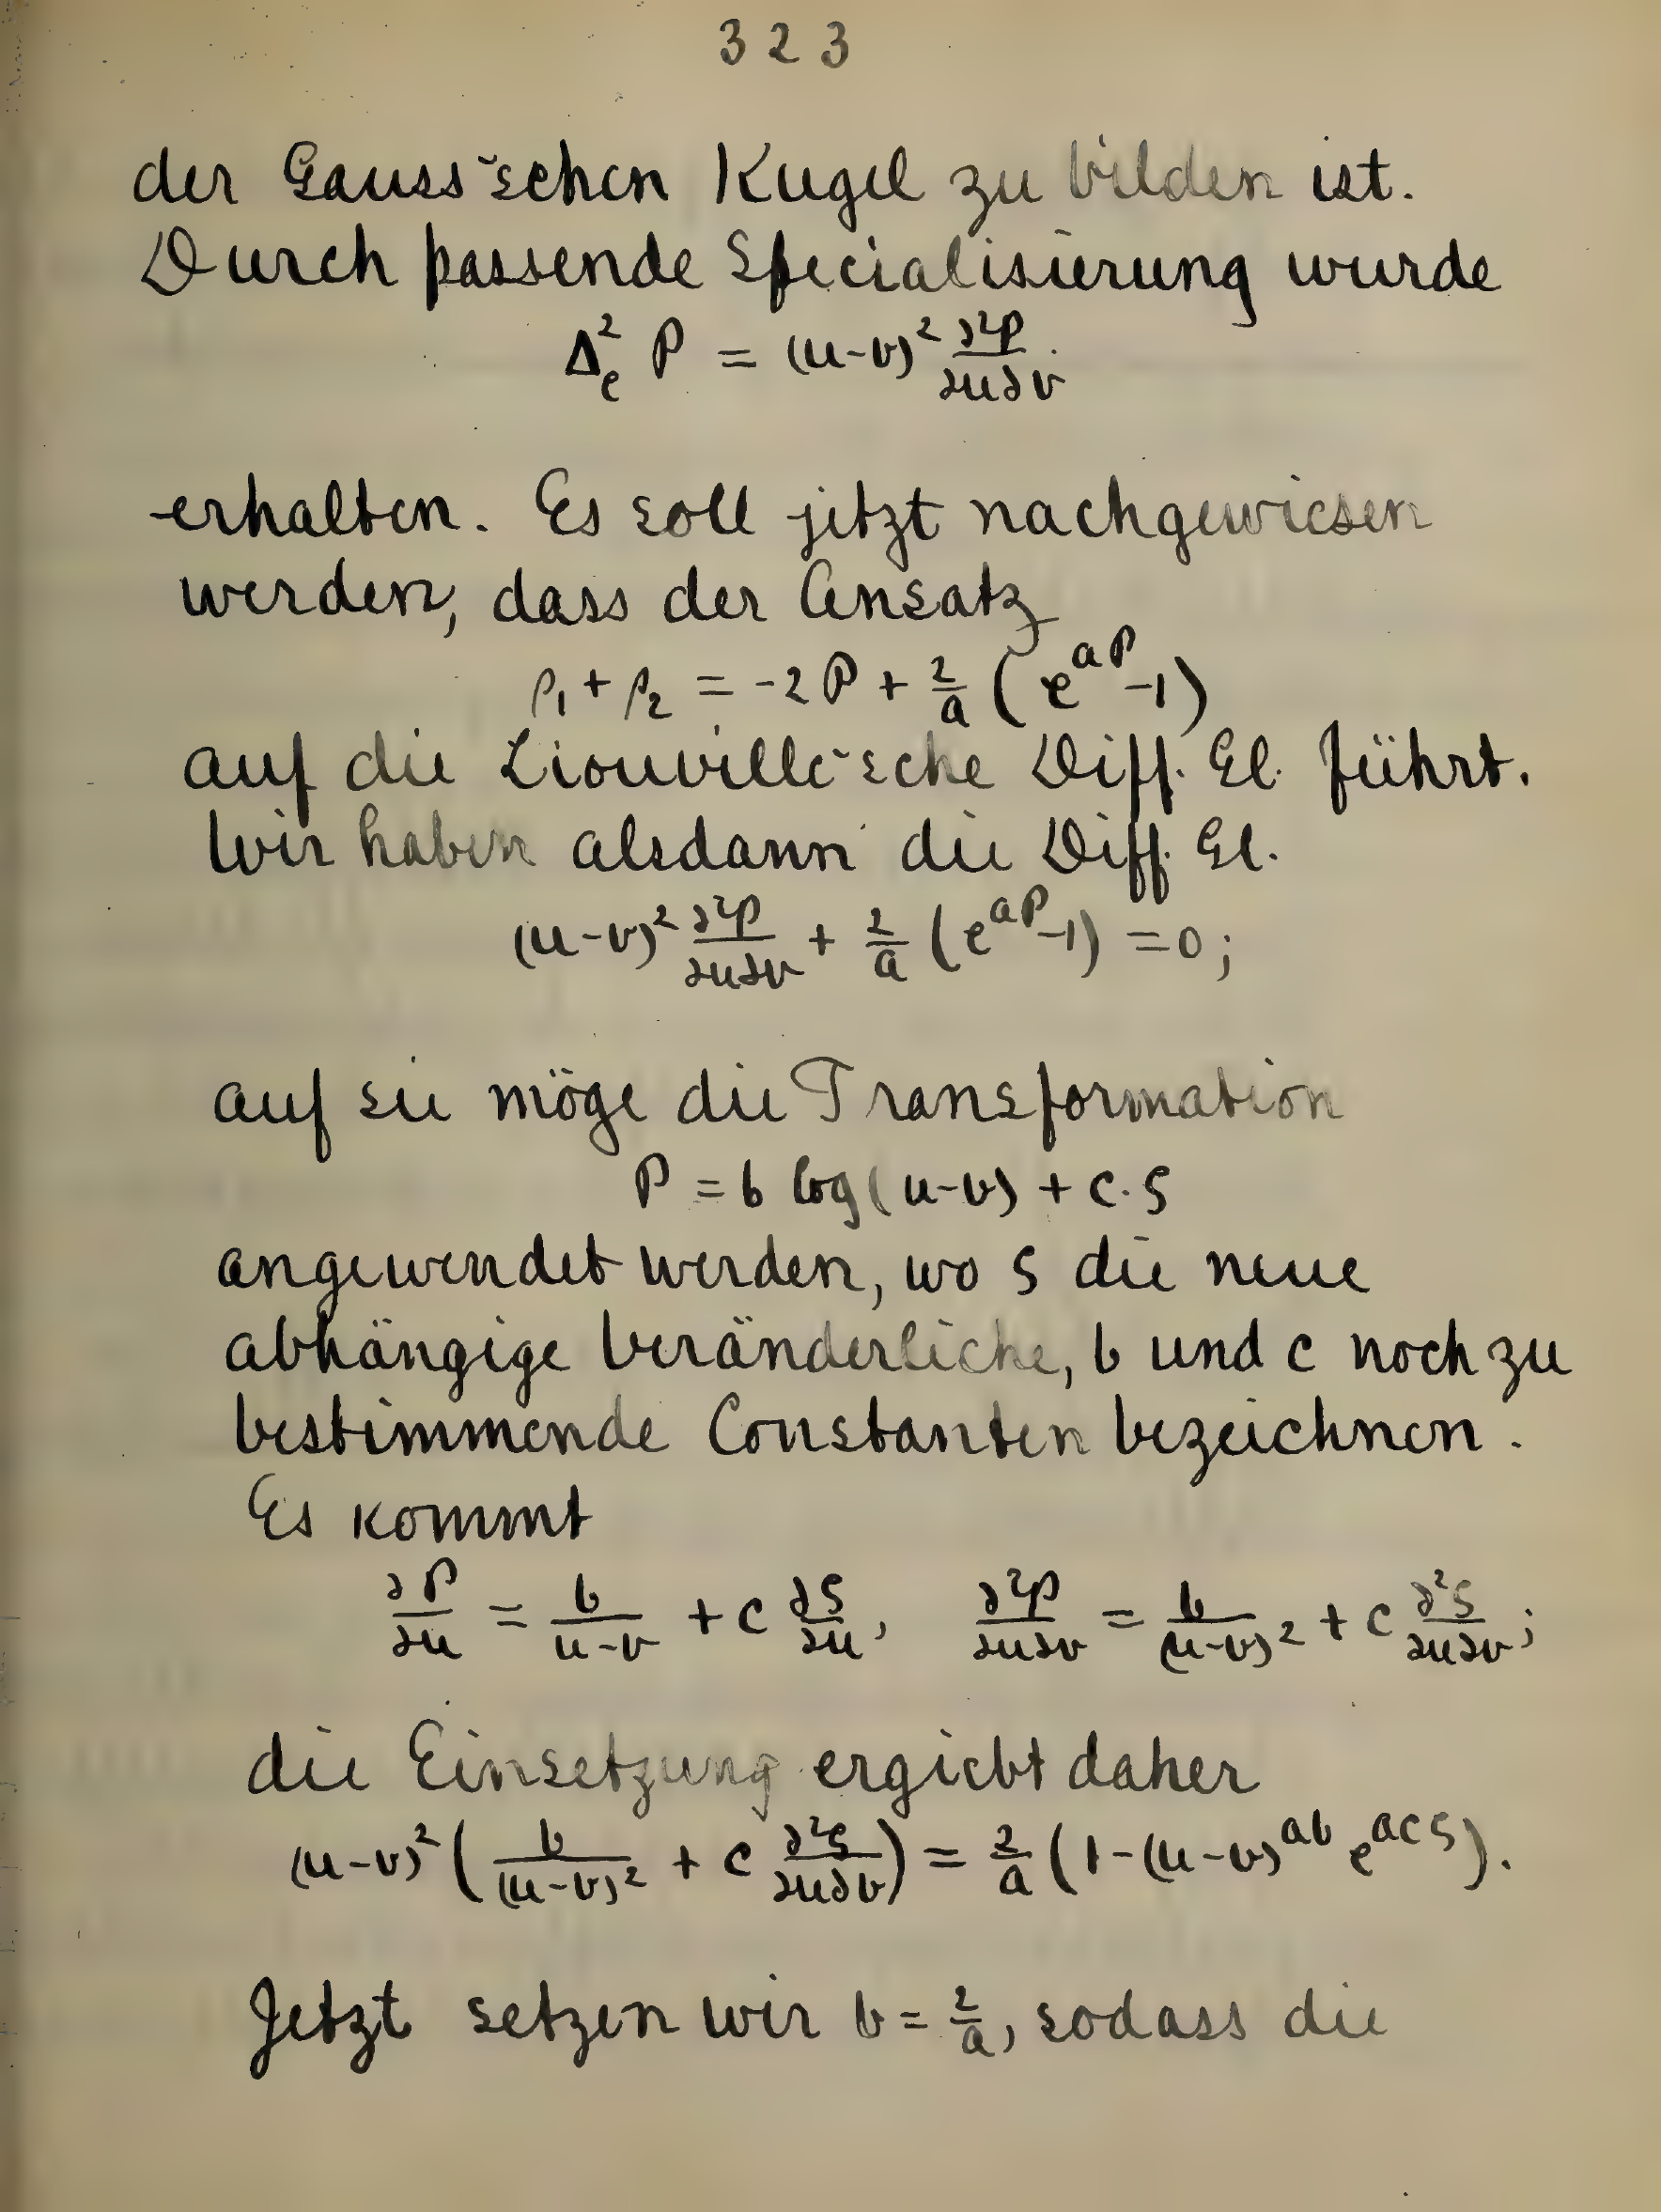 323
der Gauss'schen Kugel zu bilden ist.
Durch passende Specialisierung wurde
Δ²ₑ P = (u-v)² ∂²P/∂u∂v
erhalten. Es soll jetzt nachgewiesen
werden, dass der Ansatz
ρ₁ + ρ₂ = -2P + 2/a (e^{aP}-1)
auf die Liouville'sche Diff. Gl. führt.
Wir haben alsdann die Diff. Gl.
(u-v)² ∂²P/∂u∂v + 2/a (e^{aP}-1) = 0;
auf sie möge die Transformation
P = b log(u-v) + c·ς
angewendet werden, wo ς die neue
abhängige Veränderliche, b und c noch zu
bestimmende Constanten bezeichnen.
Es kommt
∂P/∂u = b/(u-v) + c ∂ς/∂u, ∂²P/∂u∂v = b/(u-v)² + c ∂²ς/∂u∂v;
die Einsetzung ergiebt daher
(u-v)² (b/(u-v)² + c ∂²ς/∂u∂v) = 2/a (1-(u-v)^{ab} e^{acς}).
Jetzt setzen wir b = 2/a, sodass die